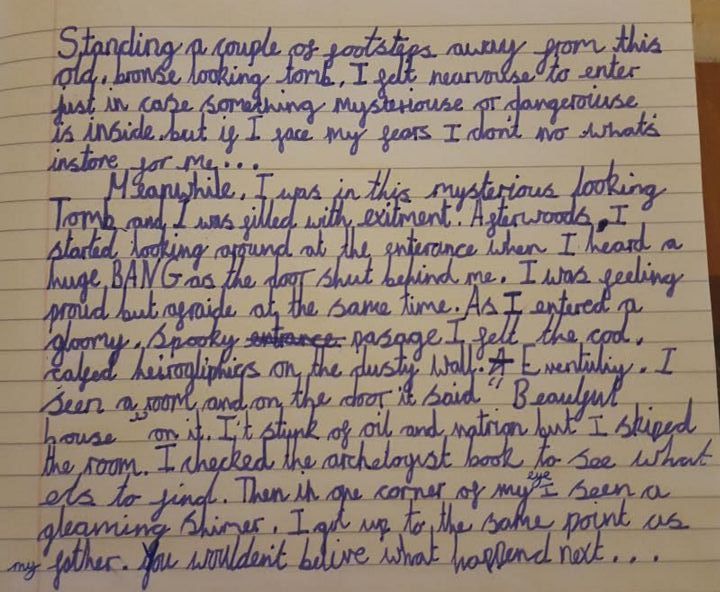 Standing a couple of footsteps away from this
old, bronse looking tomb, I felt nearvouse to enter
just in case something mysteriouse or dangerouse
is inside. but if I face my fears I don't no what's
instore for me...
Meanwhile, I was in this mysterious looking
Tomb and I was filled with exitment. Afterwoods, I
started looking around at the enterance when I heard a
huge BANG as the door shut behind me. I was feeling
proud but afraide at the same time. As I entered a
gloomy, spooky entrance pasage I felt the cool,
heirogliphics on the dusty wall. Eventuliy, I
seen a room and on the door it said " Beautyful
house " on it. I't stunk of oil and natrion but I skiped
the room. I checked the archelogyst book to see what
els to find. Then in one corner of my eye I seen a
gleaming shimer. I got up to the same point as
my father. You wouldent belive what happend next...